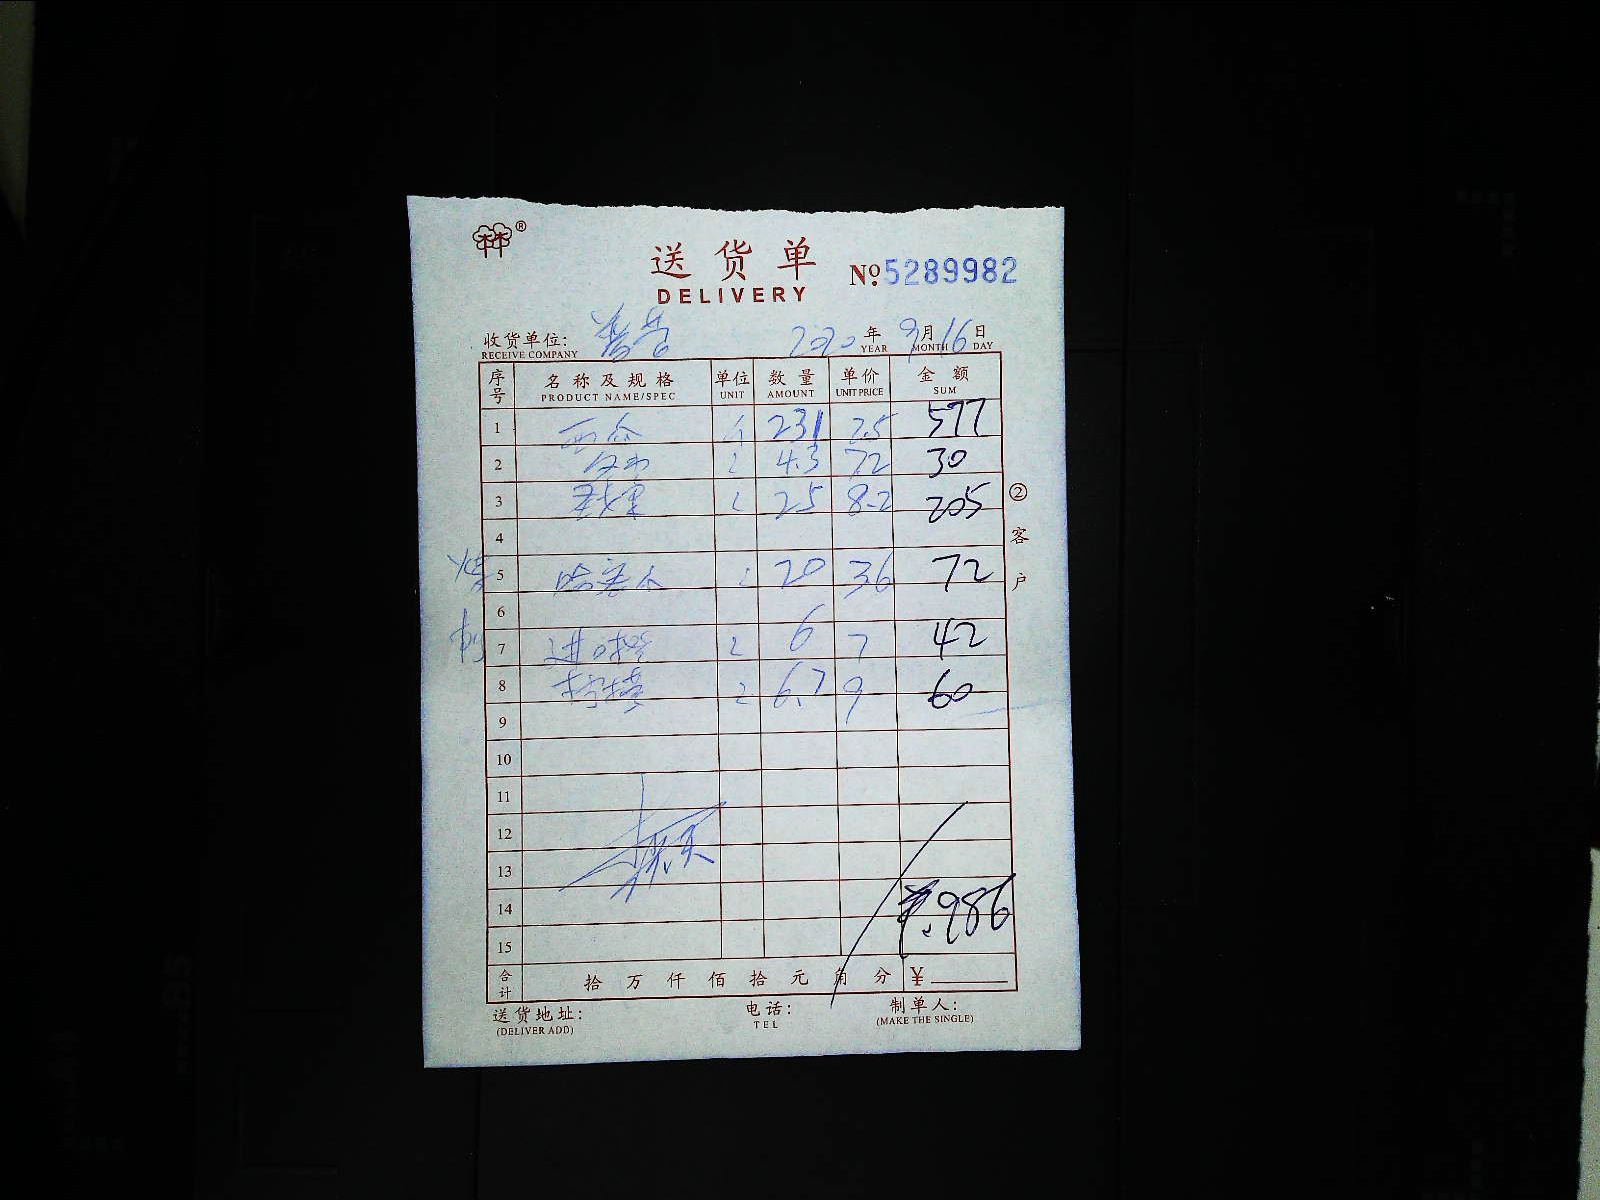 林®
送货单
DELIVERY
№5289982
收货单位: 2020年9月16日
RECEIVE COMPANY YEAR MONTH DAY
序号 名称及规格 单位 数量 单价 金额
PRODUCT NAME/SPEC UNIT AMOUNT UNIT PRICE SUM
1 个 231 2.5 577
2 4.3 72 30
3 25 8.2 205
4
5 哈密瓜 20 3.6 72
6
7 进口橙 6 7 42
8 柠檬 6.7 9 60
9
10
11
12
13
14 ¥.986
15
合计 拾万仟佰拾元角分 ¥
送货地址: 电话: 制单人:
(DELIVER ADD) TEL (MAKE THE SINGLE)
②客户